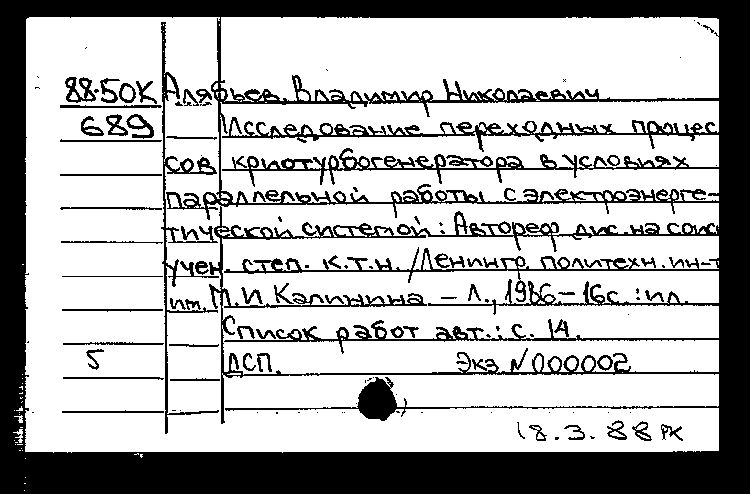 88-50К Алябьев, Владимир Николаевич
689 Исследование переходных процес
сов криотурбогенератора в условиях
параллельной работы с электроэнерге-
тической системой: Автореф дис. на соиск
учен. степ. к.т.н. /Ленингр политехн. ин-т
им. М.И. Калинина. – Л., 1986.– 16с. : ил.
Список работ авт.: с. 14.
5 ДСП. Экз N 000002
18.3.88